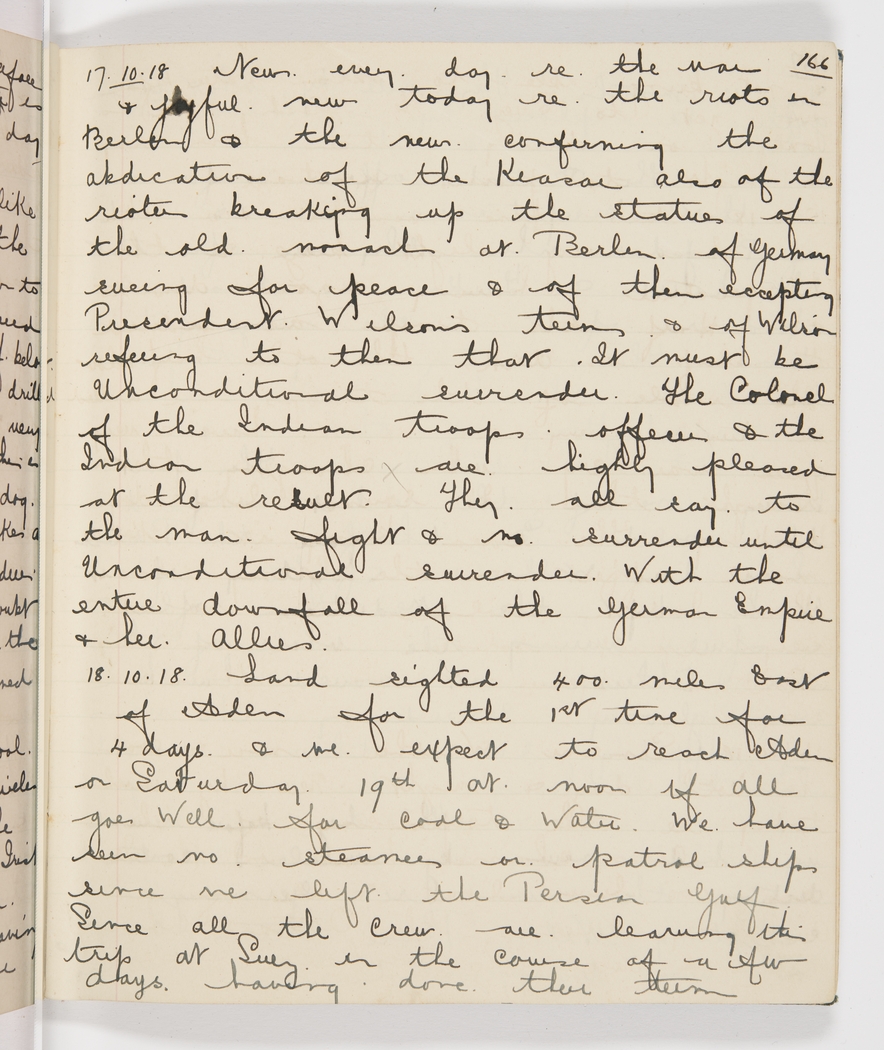 166
17.10.18 News. every. day. re. the war
& joyful. news today re. the riots in
Berlin & the news. confirming the
abdication of the Keasar also of the
rioters breaking up the statues of
the old. monach at. Berlin. of Germany
sueing for peace & of them eccepting
Presendent. Wilson's terms & of Wilson
refusing to them that. It must be
Unconditional surrender. The Colonel
of the Indian troops. officers & the
Indian troops are. highly pleased
at the result. They. all say. to
the man. fight & no. surrender until
Unconditional surrender. With the
entire downfall of the German Empire
& her. Allies.
18.10.18. Land sighted 400. miles East
of Aden for the 1st time for
4 days. & we. expect to reach Aden
on Saturday. 19th at. noon if all
goes Well. for coal & Water. We. have
seen no. steamers or. patrol ships
since we left. the Persian Gulf
Since all the Crew. are. leaving this
trip at Suez. in the course of a few
days. having. done. their term